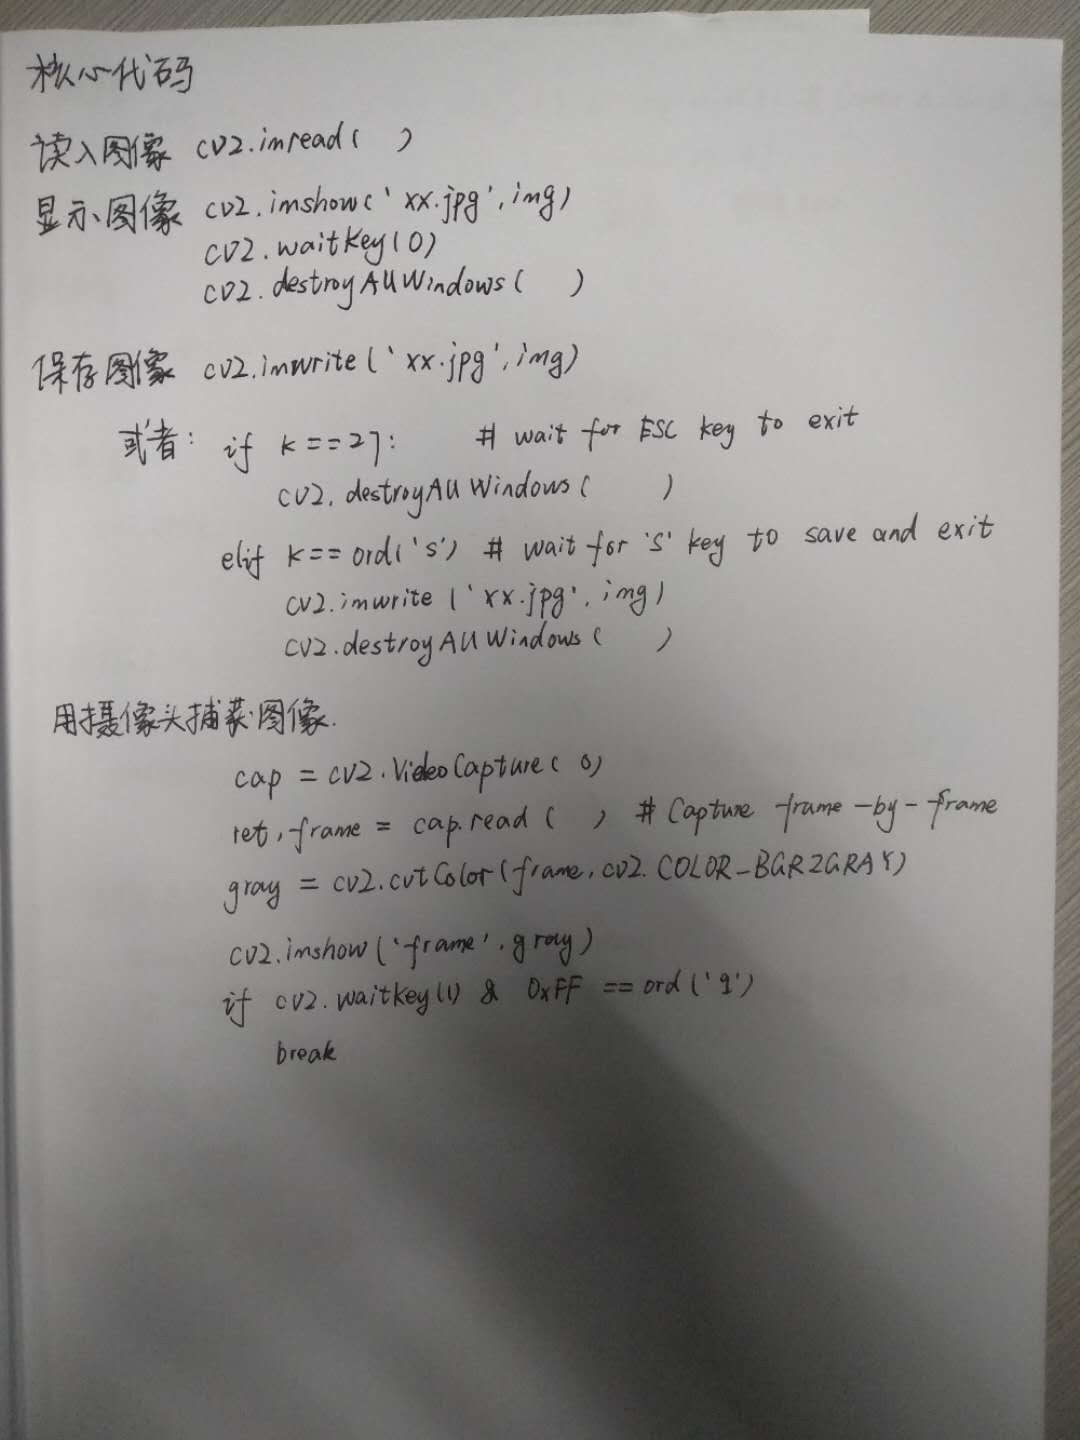 核心代码
读入图像 cv2.imread( )
显示图像 cv2.imshow('xx.jpg',img)
cv2.waitKey(0)
cv2.destroyAllWindows( )
保存图像 cv2.imwrite('xx.jpg',img)
或者: if k==27: # wait for ESC key to exit
cv2.destroyAllWindows( )
elif k==ord('s') # wait for 's' key to save and exit
cv2.imwrite('xx.jpg',img)
cv2.destroyAllWindows( )
用摄像头捕获图像.
cap = cv2.VideoCapture(0)
ret,frame = cap.read( ) # Capture frame-by-frame
gray = cv2.cvtColor(frame,cv2.COLOR_BGR2GRAY)
cv2.imshow('frame',gray)
if cv2.waitKey(1) & 0xFF ==ord('q')
break